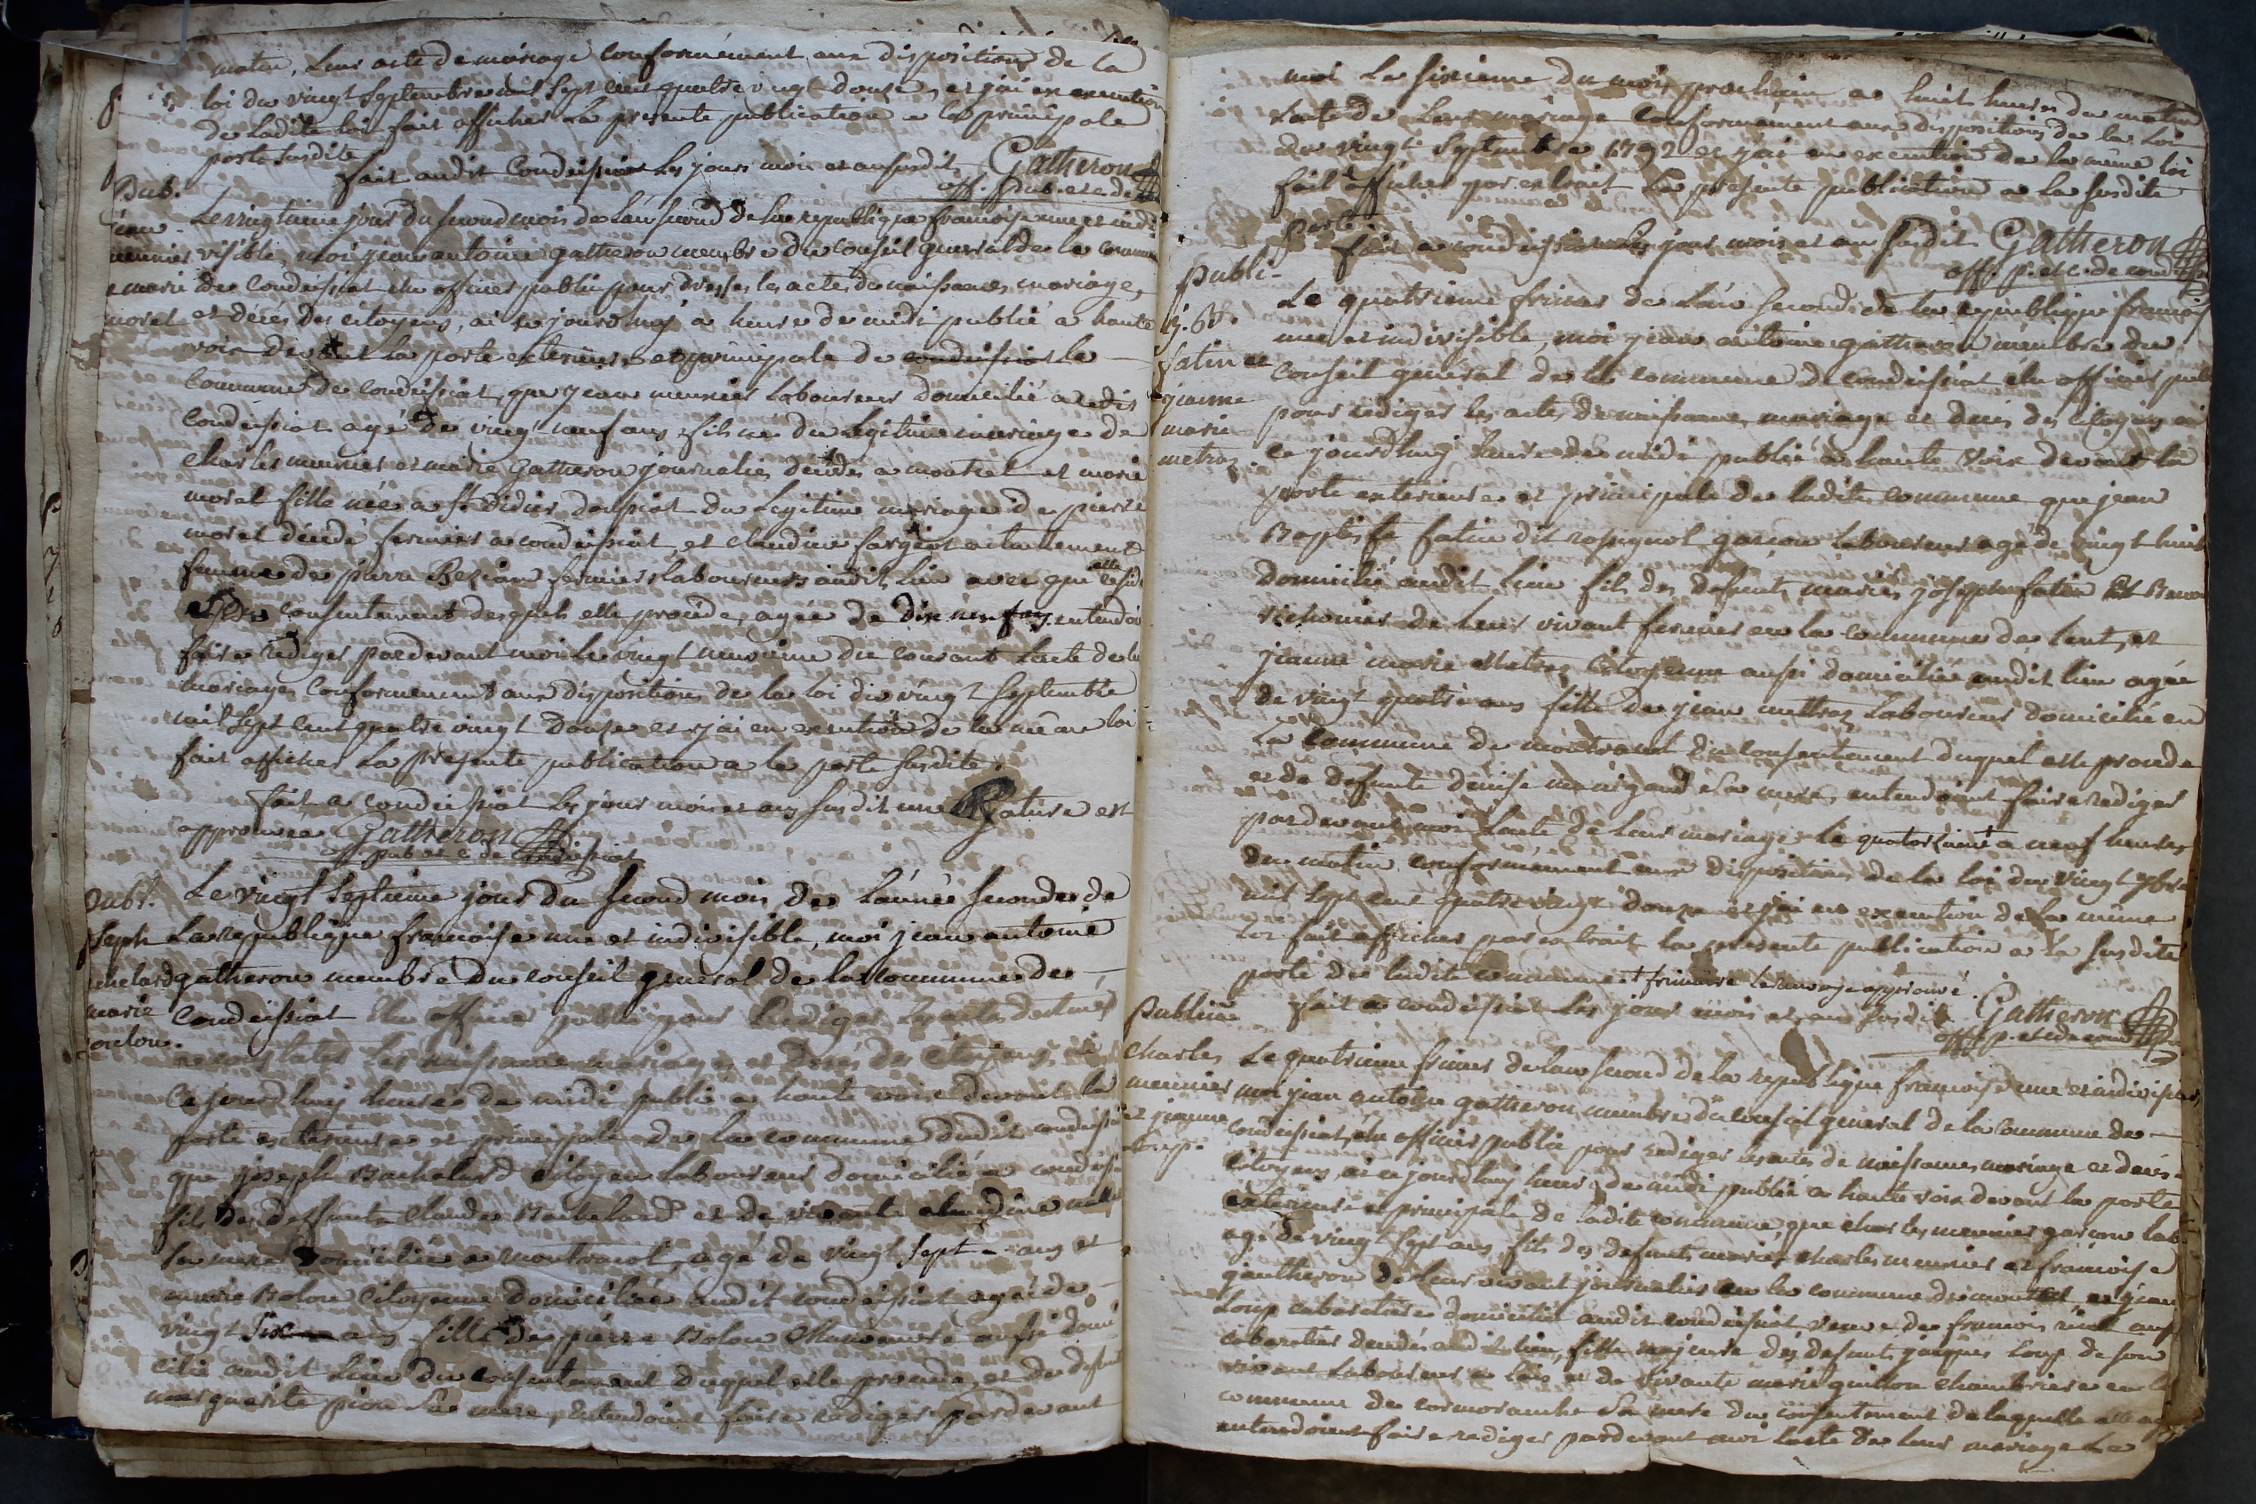 matin, leur acte de mariage conformément aux dispositions de la
loi du vingt septembre mil sept cent quatre vingt douze, et j'ai en execution
de ladite loi fait afficher la presente publication a la principale
porte susdite
fait audit Condeissiat les jours mois et an susdit Gatheron
off. pub. et c. de
Pub.
jean
meunier
marie
morel
Le vingtieme jour du second mois de l'an second de la republique francoise une et indi
visible, moi jean antoine gatheron membre du conseil general de la commune
de Condeissiat elu officier public pour dresser les actes de naissances, mariages,
et décés des citoyens, ai ce jourd'huj a heure de midi publié a haute
voix devant la porte exterieure et principale de la
Commune de condeissiat, que jean meunier laboureur domicilié audit
Condeissiat agé de vingt neuf ans fils né du legitime mariage de
Charles meunier et marie Gatheron journalier decedés a montcet et marie
morel fille née a st didier du legitime mariage de pierre
morel décédé fermier a condeissiat, et claudine actuelement
femme de pierre fermier laboureur audit lieu avec qui elle reside
consentement desquels elle procede, agée de dix neuf ans, entendoient
faire rediger pardevant moi le vingt neuvieme du courant l'acte de leur
mariage, conformement aux dispositions de la loi du vingt septembre
mil sept cent quatre vingt douze et j'ai en execution de la même loi
fait afficher la presente publication a la porte susdite.
fait a condeissiat les jour mois et an susdit une Rature est
approuvée Gatheron
off pub. et c. de Condeissiat
publ.
joseph
Bachelard
marie
Bolon.
Le vingt septieme jour du second mois de l'année seconde de
la republique francoise une et indivisible, moi jean antoine
gatheron membre du conseil general de la commune de
Condeissiat elu officier public pour rediger les actes destinés
a constater les naissances mariages et décés des citoyens, ai
ce jourd'huj heure de midi publié a haute voix devant la
porte exterieure et principale de la commune dudit condeissiat
que joseph Bachelard citoyen laboureur domicilié a condeissiat
fils de deffunt claude Bachelard et de vivante claudine
sa mere domiciliée a montracol, agé de vingt sept ans et
marie Bolon citoyenne domiciliée audit condeissiat agée de
vingt six ans fille de pierre Bolon aussi domi
cilié audit lieu du consentement duquel elle procede, et de defunte
marguerite pion sa mere, entendoient faire rediger pardevant
moi le sixieme du mois prochain a huit heures du matin
l'acte de leur mariage conformement aux dispositions de la loi
du vingt septembre 1792 et j'ai en execution de la même loi
fait afficher par extrait la presente publication a la susdite
porte.
fait a condeissiat les jour mois et an susdit Gatheron
off. p. et c. de cond
publi-
j. Bte.
fatin et
jeanne
marie
metraz
Le quatrieme frimer de l'an second de la republique francoise
une et indivisible, moi jean antoine gatheron membre du
Conseil general de la commune de condeissiat elu officier public
pour rediger les actes de naissance, mariage et décés des citoyens ai
ce jourd'huj heure de midi publié a haute voix devant la
porte exterieure et principale de ladite commune que jean
Baptiste fatin dit rossignol garçon laboureur agé de vingt huit
domicilié audit lieu fils des defunts mariés joseph fatin et
de leur vivant fermier en la commune de lent, et
jeanne marie Metraz citoyenne aussi domiciliée audit lieu agée
de vingt quatre ans fille de jean mettraz laboureur domicilié en
la commune de montracol du consentement duquel elle procede
et de defunte denise sa mere, entendoient faire rediger
pardevant moi l'acte de leur mariage le quatorzieme a neuf heures
du matin conformément aux dispositions de la loi du vingt 7bre
mil sept cent quatre vingt douze et j'ai en execution de la même
loi fait afficher par extrait la presente publication a la susdite
porte de ladite commune. + frimaire le renvoy approuvé.
fait a condeissiat les jour mois et an susdit Gatheron
off. p. et c. de cond
Publié
Charles
meunier
et jeanne
Loup.
Le quatrieme frimer de l'an second de la republique francoise une et indivisible,
moi jean antoine gatheron membre du conseil general de la commune de
Condeissiat, elu officier public pour rediger les actes de naissances, mariage et décés
citoyens, ai ce jourd'huj heure de midi publié a haute voix devant la porte
exterieure et principale de ladite commune, que charles meunier garcon lab
agé de vingt sept ans fils des defunts mariés charles meunier et francoise
gautheron de leur vivant journaliers en la commune de montcet et jean
Loup cabaretiere domiciliée audit condeissiat veuve de francois
cabaretier decedés audit lieu, fille majeure des defunts jacques Loup de son
vivant laboureur a et de vivante marie guillon chambriere en la
commune de cormoranche sa mere du consentement de laquelle elle agit
entendoient faire rediger pardevant moi l'acte de leur mariage le